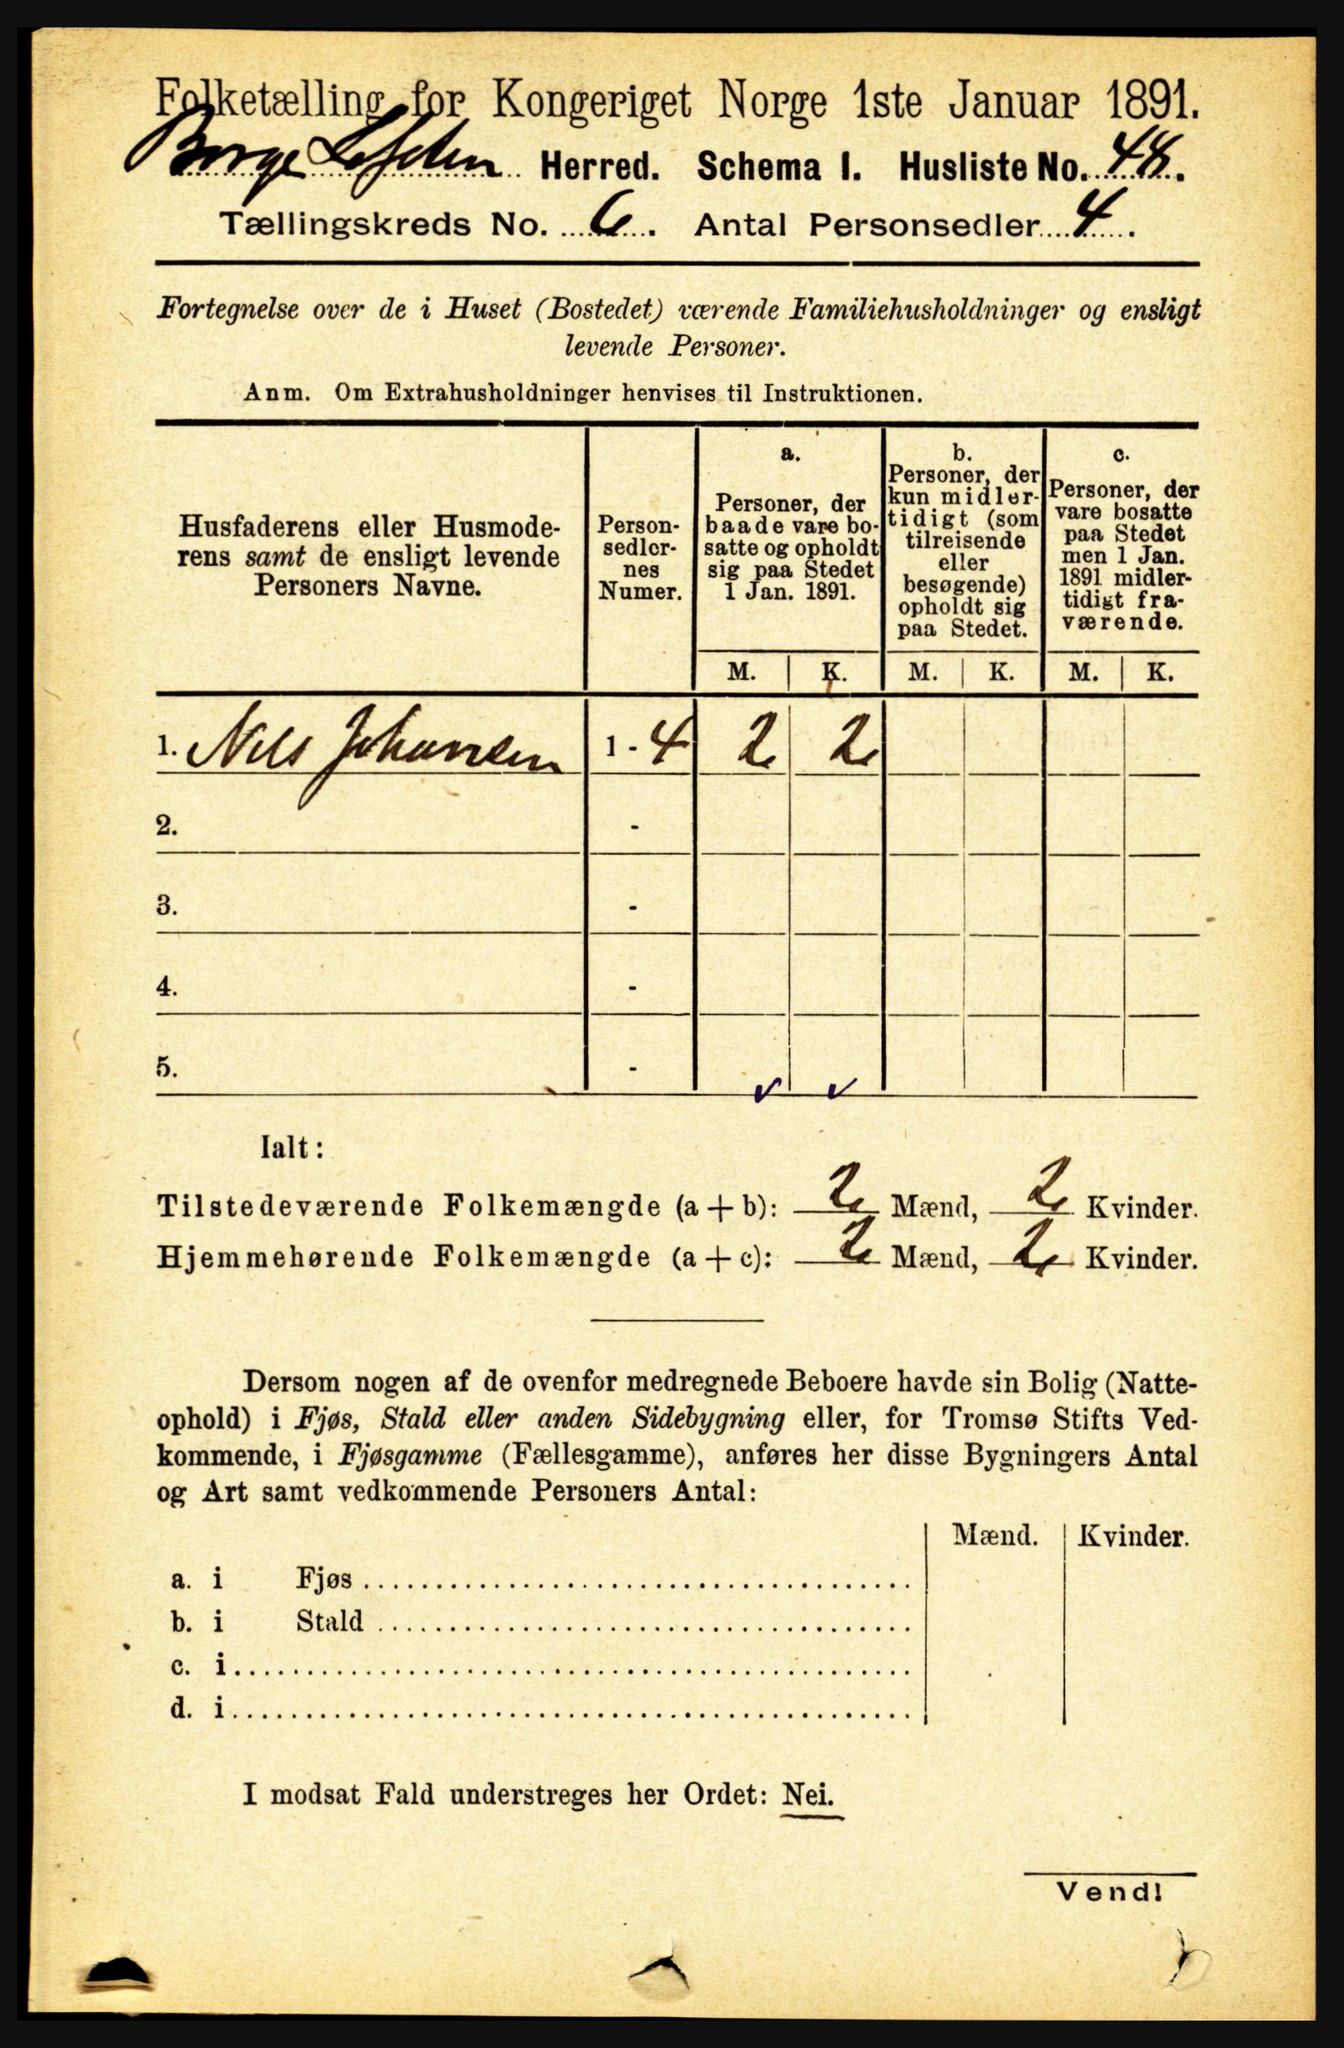 Folketælling for Kongeriget Norge 1ste Januar 1891.
Borge Lofoten Herred. Schema I. Husliste No. 48.
Tællingskreds No. 6. Antal Personsedler 4.
Fortegnelse over de i Huset (Bostedet) værende Familiehusholdninger og ensligt
levende Personer.
Anm. Om Extrahusholdninger henvises til Instruktionen.
Husfaderens eller Husmode-
rens samt de ensligt levende
Personers Navne.
Person-
sedler-
nes
Numer.
a.
Personer, der
baade vare bo-
satte og opholdt
sig paa Stedet
1 Jan. 1891.
b.
Personer, der
kun midler-
tidigt (som
tilreisende
eller
besøgende)
opholdt sig
paa Stedet.
c.
Personer, der
vare bosatte
paa Stedet
men 1 Jan.
1891 midler-
tidigt fra-
værende.
M. K. M. K. M. K.
1. Nils Johansen 1 - 4 2 2
2. -
3. -
4. -
5. -
Ialt:
Tilstedeværende Folkemængde (a + b): 2 Mænd, 2 Kvinder.
Hjemmehørende Folkemængde (a + c): 2 Mænd, 2 Kvinder.
Dersom nogen af de ovenfor medregnede Beboere havde sin Bolig (Natte-
ophold) i Fjøs, Stald eller anden Sidebygning eller, for Tromsø Stifts Ved-
kommende, i Fjøsgamme (Fællesgamme), anføres her disse Bygningers Antal
og Art samt vedkommende Personers Antal:
Mænd. Kvinder.
a. i Fjøs
b. i Stald
c. i
d. i
I modsat Fald understreges her Ordet: Nei.
Vend!